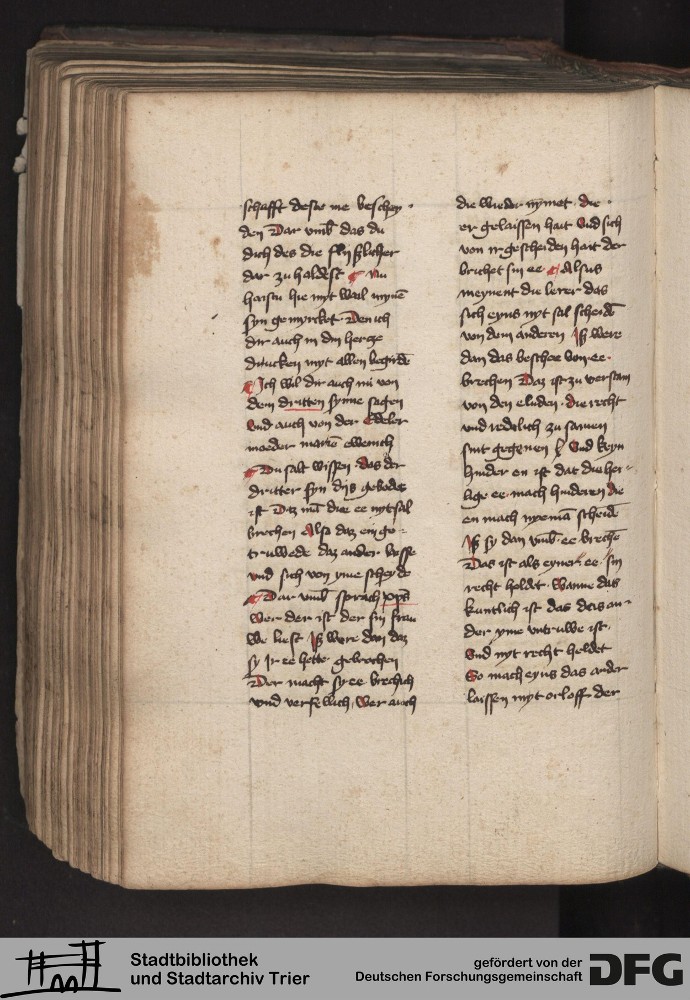 schafft deste me beschey
den Dar vmb das du
dich des die flyßlicher
dar zu haldest Nu
haistu hie myt wail mynē
syn gemyrcket Den ich
dir auch in din hercze
drucken myt allen begirdē
Ich wil dir auch nu von
dem dritten synne sagen
Vnd auch von der Edeler
moeder marie ewenich
Du salt wissen das der
dritter syn dijs gebodes
ist Daz mā die ee nyt sal
brechen Also daz ein ge
truwede daz ander besse
vnd sich von yme scheyde
Dar vmb sprach xp̄s
Wer der ist der sin frau
we liest Iß were dan daz
sy ir ee hette gebrochen
Der macht sy ee brechich
vnd verfellich Wer auch
die wieder nymet die
er gelaissen hait Vnd sich
von ir gescheiden hait der
brichet sin ee Alsus
meynent die lerer das
sich eyns nyt sal scheidē
von dem anderen Iß were
dan das beschee von ee
brechen Daz ist zu verstain
von den eluden die recht
vnd redelich zu samen
sint gegeuen Vnd keyn
hinder en ist dat die hei
lige ee mach hinderen die
en mach nyemā scheidē
Iß sy dan vmb ee brechē
Das ist als eyner ee sin
recht heldet Wanne das
kuntlich ist das deis an
der yme vntruwe ist
Vnd nyt recht heldet
So mach eyns das ander
laissen myt orloff der
Stadtbibliothek
und Stadtarchiv Trier
gefördert von der
Deutschen Forschungsgemeinschaft
DFG